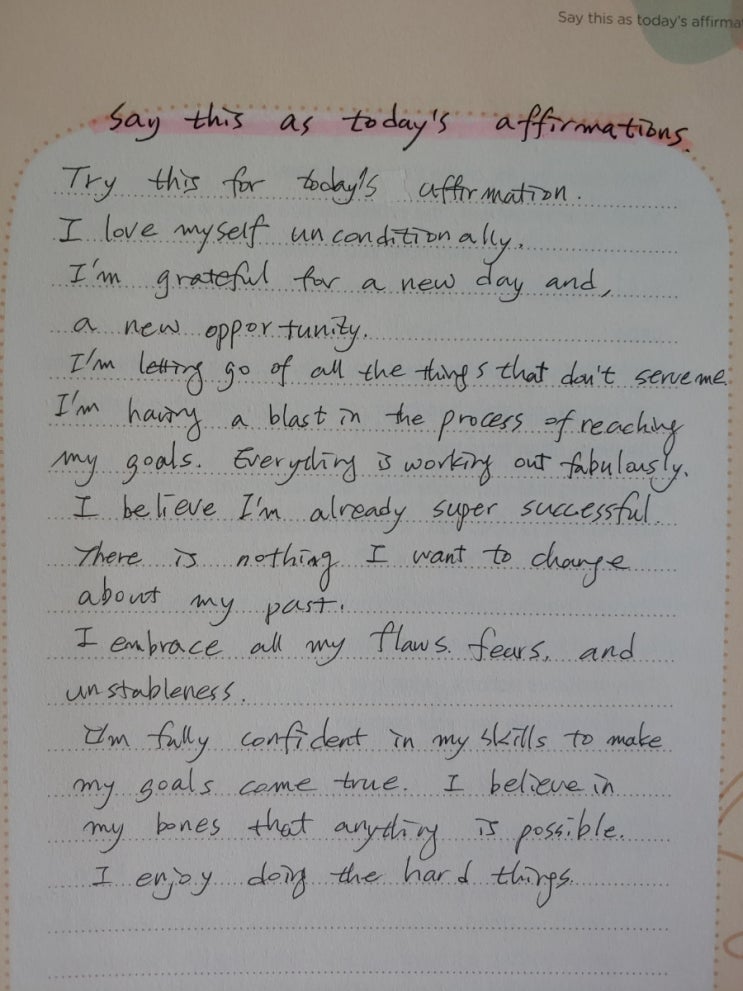 Say this as today's affirma
Say this as today's affirmations.
Try this for today's affirmation.
I love myself unconditionally.
I'm grateful for a new day and,
a new opportunity.
I'm letting go of all the things that don't serve me.
I'm having a blast in the process of reaching
my goals. Everything is working out fabulously.
I believe I'm already super successful.
There is nothing I want to change
about my past.
I embrace all my flaws. fears, and
unstableness.
I'm fully confident in my skills to make
my goals come true. I believe in
my bones that anything is possible.
I enjoy doing the hard things.